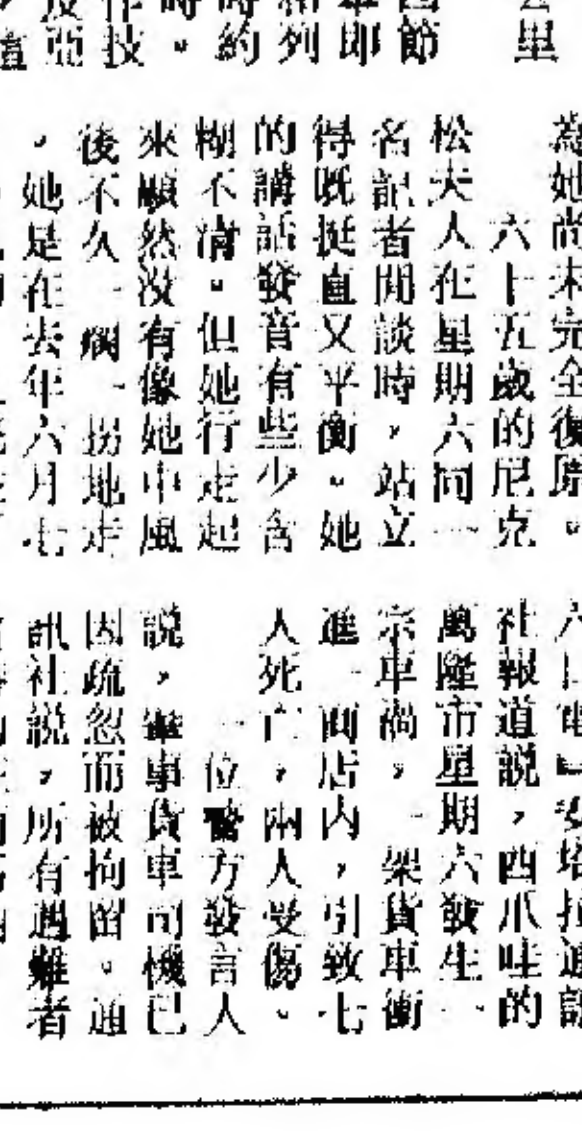 里
節
即
列
約
。
技
亞
為她尚未完全復原。
六十五歲的尼克
松夫人在星期六同一
名記者閒談時，站立
得既挺直又平衡。她
的講話發音有些少含
糊不清。但她行走起
來顯然没有像她中風
後不久一一拐地走
，她是在去年六月七
六日電】安塔拉通訊
社報道説，西爪哇的
萬隆市星期六發生一
宗車禍，一架貨車衝
進一商店內，引致七
人死亡，兩人受傷。
一位警方發言人
説，肇事貨車司機已
因疏忽而被拘留。通
訊社説，所有遇難者